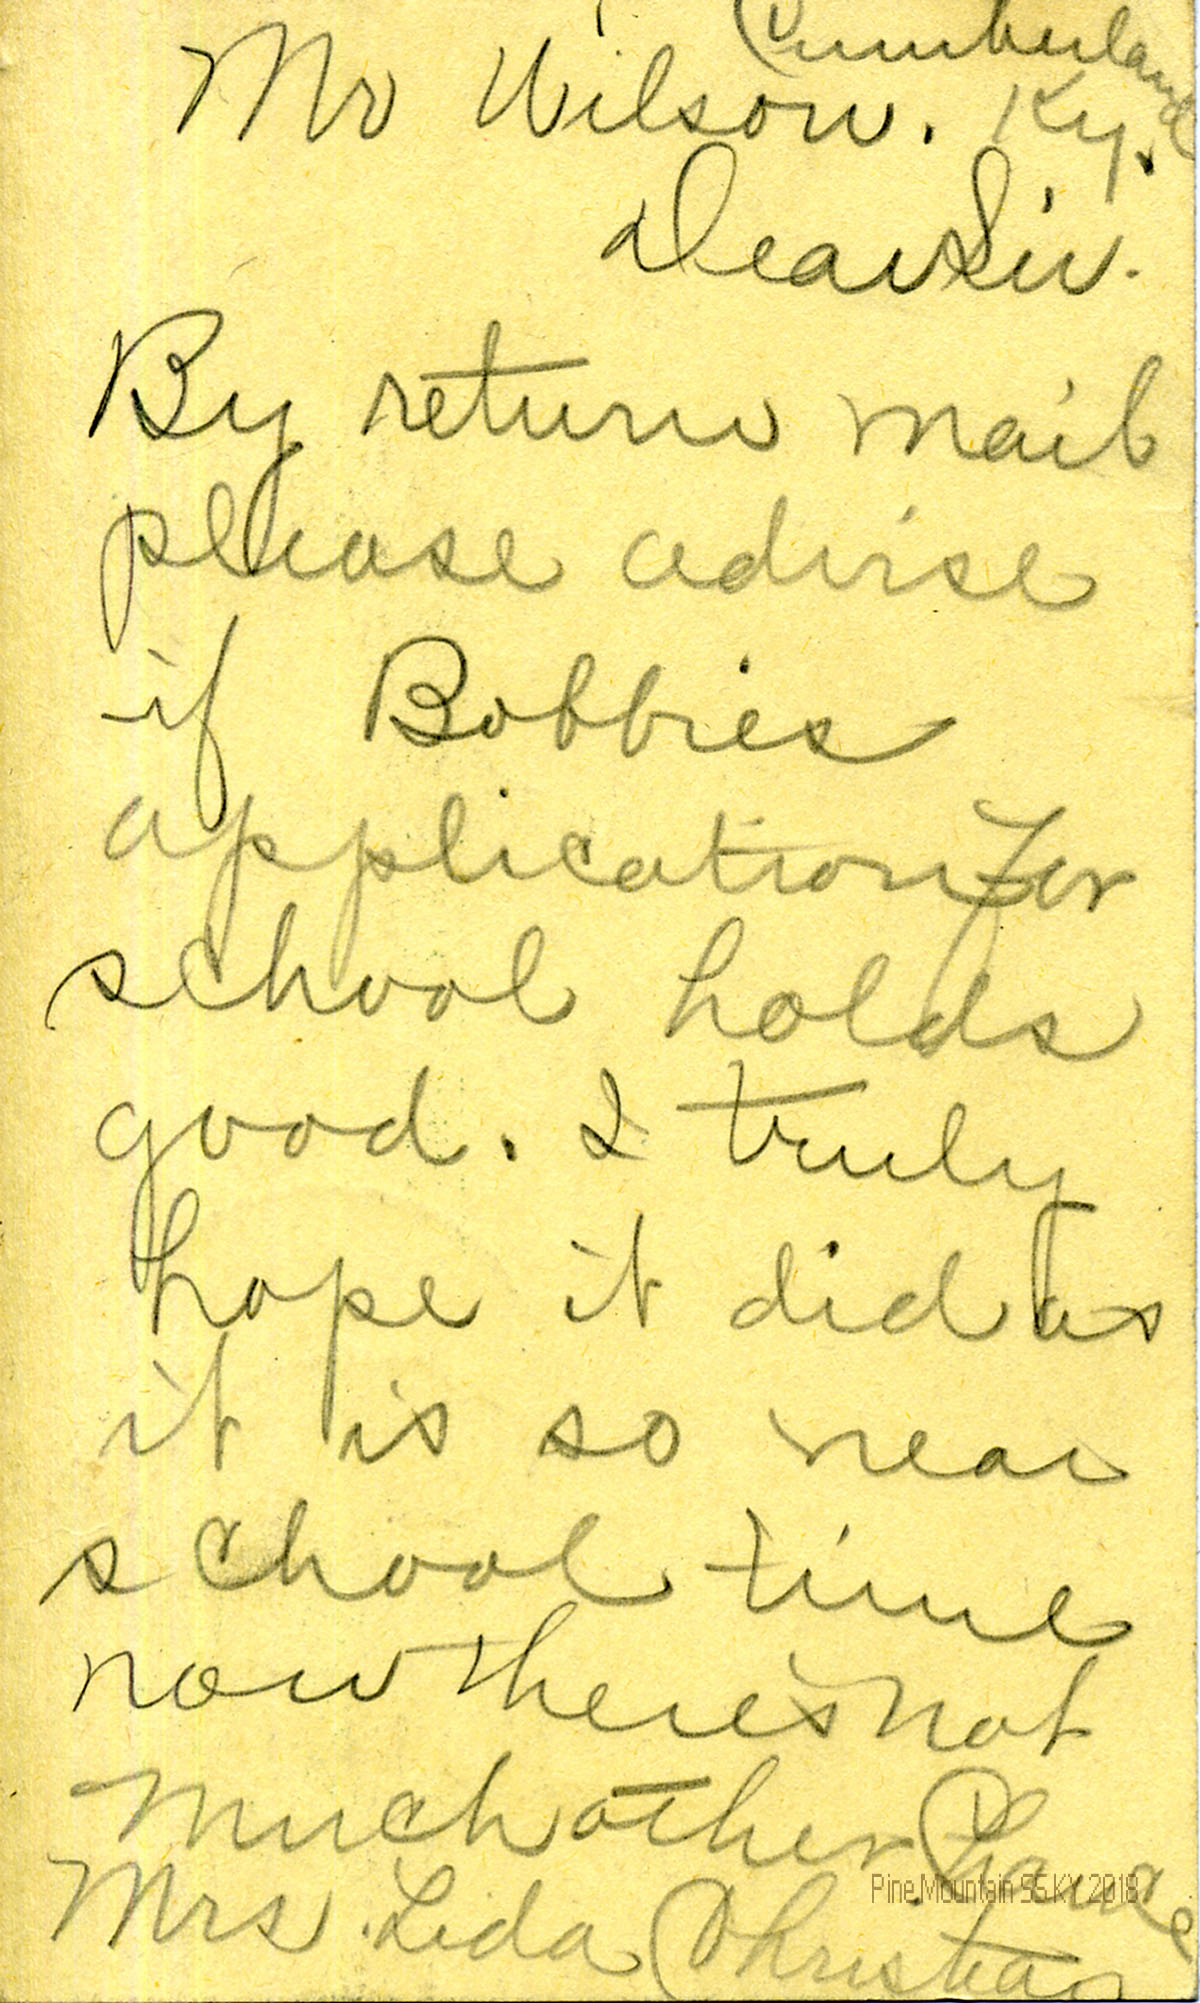 Cumberland
Mr Wilson. Ky.
Dear Sir.
By return mail
please advise
if Bobbies
application For
school holds
good. I truly
hope it did as
it is so near
school time
now theres not
much other Chance
Mrs. Lida Christian
Pine Mountain SS KY 2018